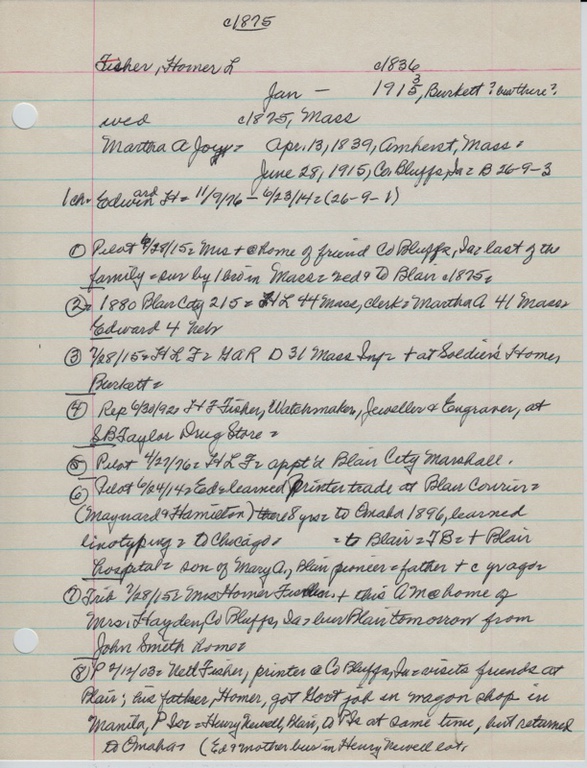 c1875
Fisher, Homer L c1836
Jan — 1915, Burkett? bur there?
wed c1875, Mass
Martha A Joy= Apr. 13, 1839, Amherst, Mass =
June 28, 1915, Co. Bluffs, Ia = B 26-9-3
1 ch= Edward H= 11/9/76 - 6/23/14= (26-9-1)
① Pilot 6/29/15= Mrs + @ home of friend Co Bluffs, Ia= last of the
family= sur by 1 bro in Mass= wed & to Blair c1875=
②= 1880 Blair City 215= H L 44 Mass, clerk= Martha A 41 Mass=
Edward 4 Neb
③ 7/28/15= H L F= GAR D 31 Mass Inf= + at Soldier's Home,
Burkett=
④ Rep 6/30/92= H F Fisher, Watchmaker, Jeweller & Engraver, at
S B Taylor Drug Store=
⑤ Pilot 4/27/76= H L F= appt'd Blair City Marshall.
⑥ Pilot 6/24/14= Ed= learned printer trade at Blair Courier=
(Maynard & Hamilton) 8 yrs= to Omaha 1896, learned
linotyping= to Chicago= = to Blair= TB= + Blair
hospital= son of Mary A, Blair pioneer= father + c yr ago=
⑦ Trib 7/28/15= Mrs Homer + this AM @ home of
Mrs. Hayden, Co Bluffs, Ia= bur Blair tomorrow from
John Smith home=
⑧ P 2/12/03= Nett Fisher, printer @ Co Bluffs, Ia= visits friends at
Blair; his father, Homer, got Govt job in wagon shop in
Manila, P Is= Henry Newell, Blair, to P Is at same time, but returned
to Omaha= (Ed & mother bur in Henry Newell lot.